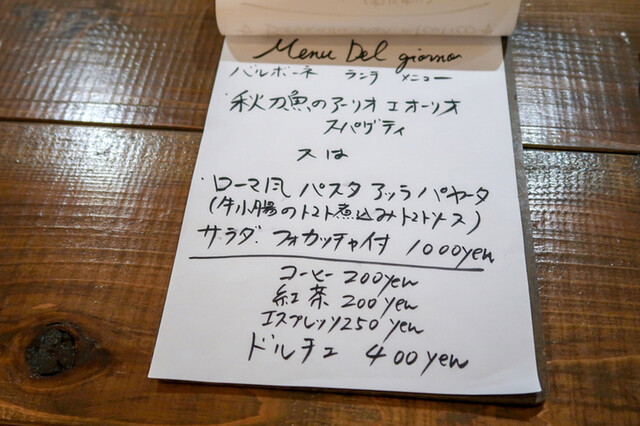 Menu Del giorno
バルボーネ ランチ メニュー
秋刀魚のアーリオエオーリオ
スパゲティ
又は
ローマ風 パスタ アッラ パヤータ
(牛小腸のトマト煮込みトマトソース)
サラダ フォカッチャ付 1000yen
コーヒー 200yen
紅茶 200yen
エスプレッソ250yen
ドルチェ 400yen